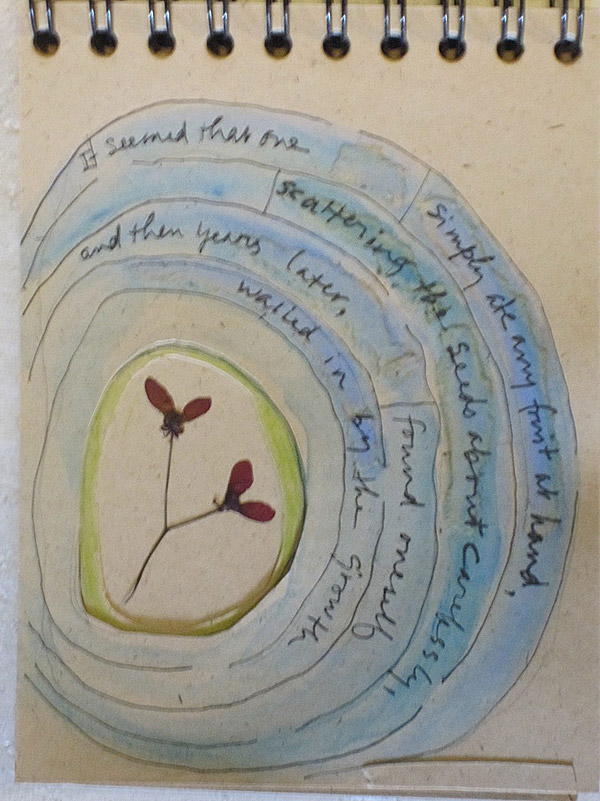 It seemed that one
simply ate any fruit at hand,
scattering the seeds about carelessly,
and then years later,
found oneself
walled in by the growth